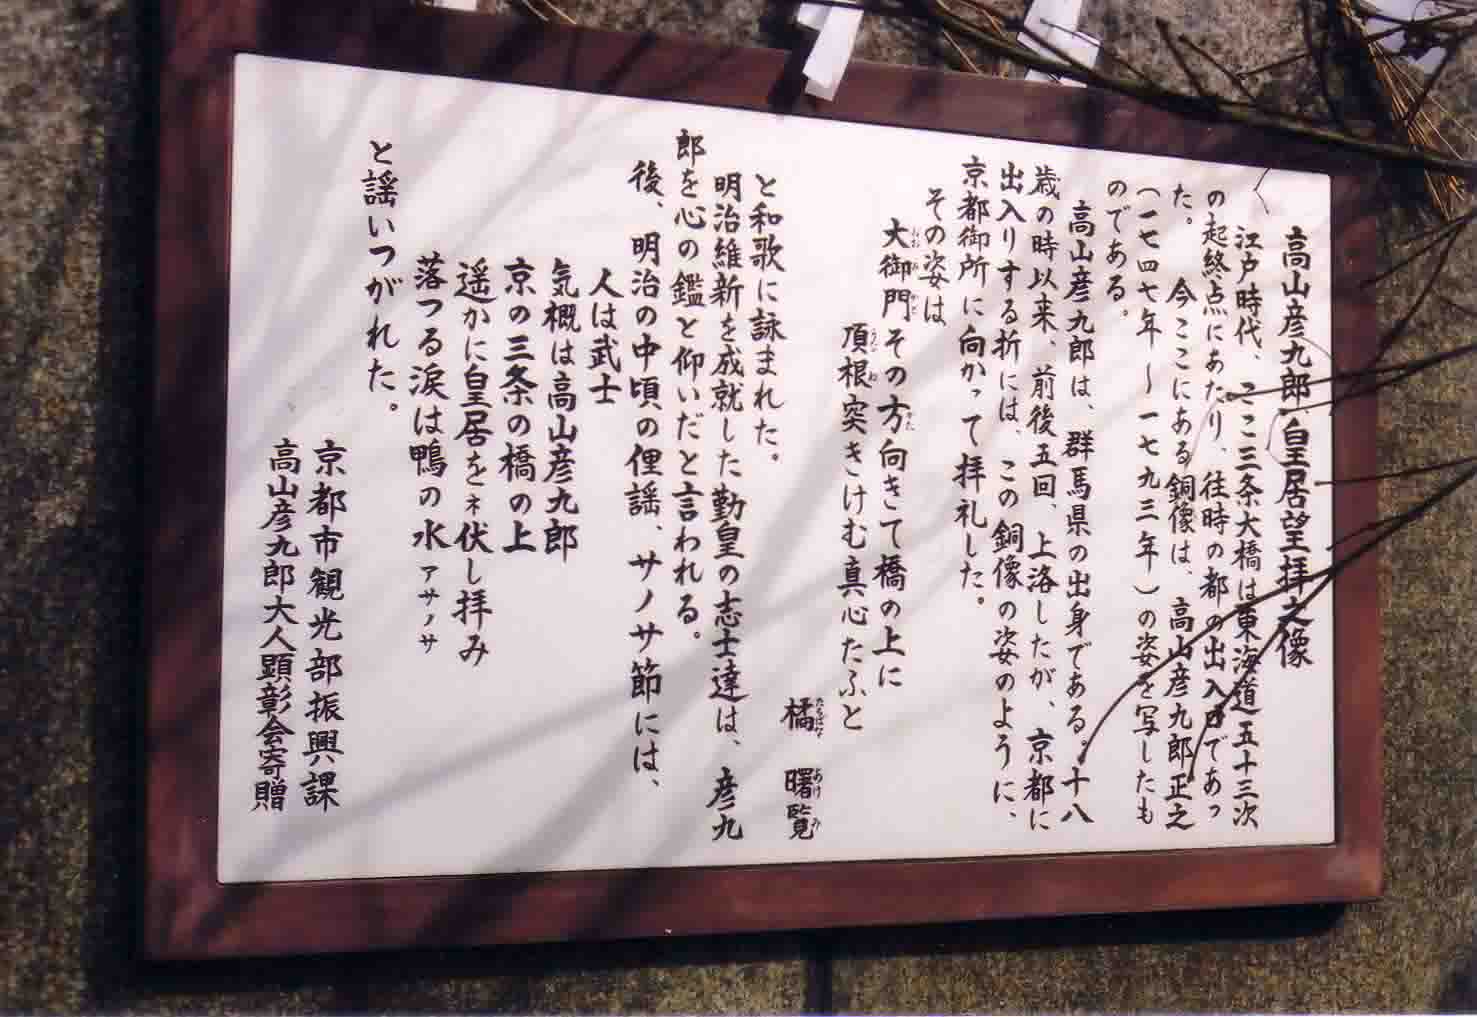 高山彦九郎 皇居望拝之像
江戸時代、ここ三条大橋は東海道五十三次
の起終点にあたり、往時の都の出入口であっ
た。 今ここにある銅像は、高山彦九郎正之
(一七四七年〜一七九三年)の姿を写したも
のである。
高山彦九郎は、群馬県の出身である。十八
歳の時以来、前後五回、上洛したが、京都に
出入りする折には、この銅像の姿のように、
京都御所に向かって拝礼した。
その姿は、
大御門その方向きて橋の上に
頂根突きけむ真心たふと
橘 曙覧
と和歌に詠まれた。
明治維新を成就した勤皇の志士達は、彦九
郎を心の鑑と仰いだと言われる。
後、明治の中頃の俚謡、サノサ節には、
人は武士
気概は高山彦九郎
京の三条の橋の上
遥かに皇居をネ伏し拝み
落つる涙は鴨の水 アサノサ
と謡いつがれた。
京都市観光部振興課
高山彦九郎大人顕彰会寄贈